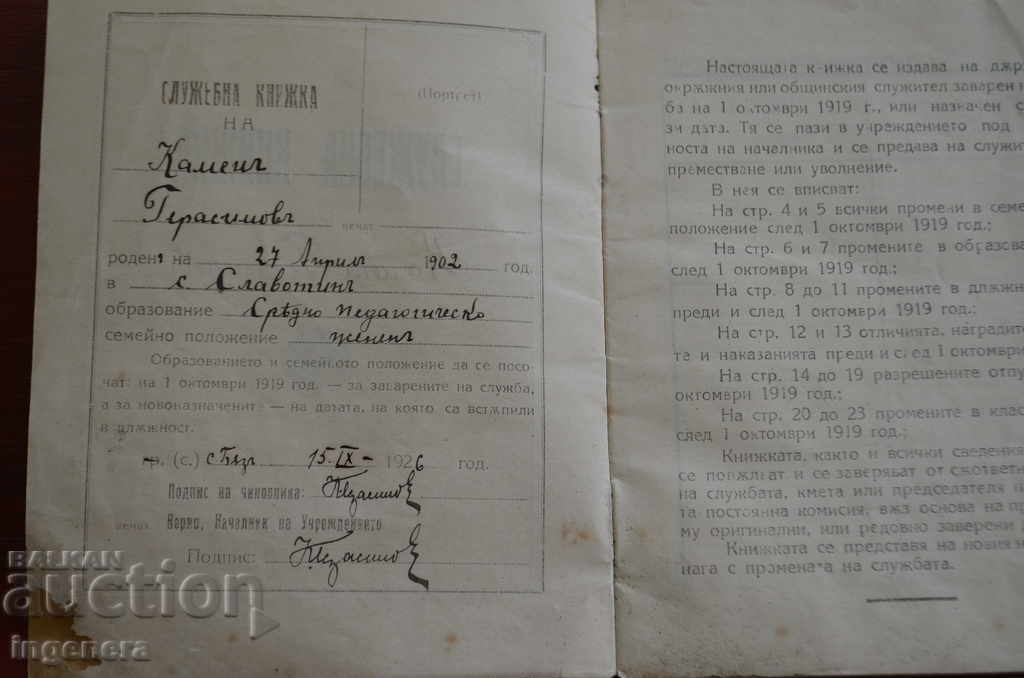 СЛУЖЕБНА КНИЖКА
НА
(Портрет)
Каменъ
Герасимовъ
печат
роденъ на 27 Априлъ 1902 год.
в с. Славотинъ
образование Срѣдно педагогическо
семейно положение жененъ
Образованието и семейното положение да се посо-
чат: на 1 октомври 1919 год. — за заварените на служба,
а за новоназначените — на датата, на която са встѫпили
в длѫжност.
гр. (с.) с. Бѣзъ 15. IX - 1926 год.
Подпис на чиновника:
печат Вярно, Началник на Учреждението
Подпис:
Настоящата книжка се издава на дѫрж
окрѫжния или общинския служител заварен н
ба на 1 октомври 1919 г., или назначен с
зи дата. Тя се пази в учреждението под
ността на началника и се предава на служит
преместване или уволнение.
В нея се вписват:
На стр. 4 и 5 всички промени в семе
положение след 1 октомври 1919 год.;
На стр. 6 и 7 промените в образова
след 1 октомври 1919 год.;
На стр. 8 до 11 промените в длѫжн
преди и след 1 октомври 1919 год.;
На стр. 12 и 13 отличията, наградит
та и наказанията преди и след 1 октомври
На стр. 14 до 19 разрешените отпу
октомври 1919 год.;
На стр. 20 до 23 промените в клас
след 1 октомври 1919 год.;
Книжката, както и всички сведения
се повѫлват и се заверяват от сѫответн
на службата, кмета или председателя н
та постоянна комисия, вѫз основа на пр
му оригинални, или редовно заверени
Книжката се представя на новия н
ната с промената на службата.
BALKAN
auction
ingenera